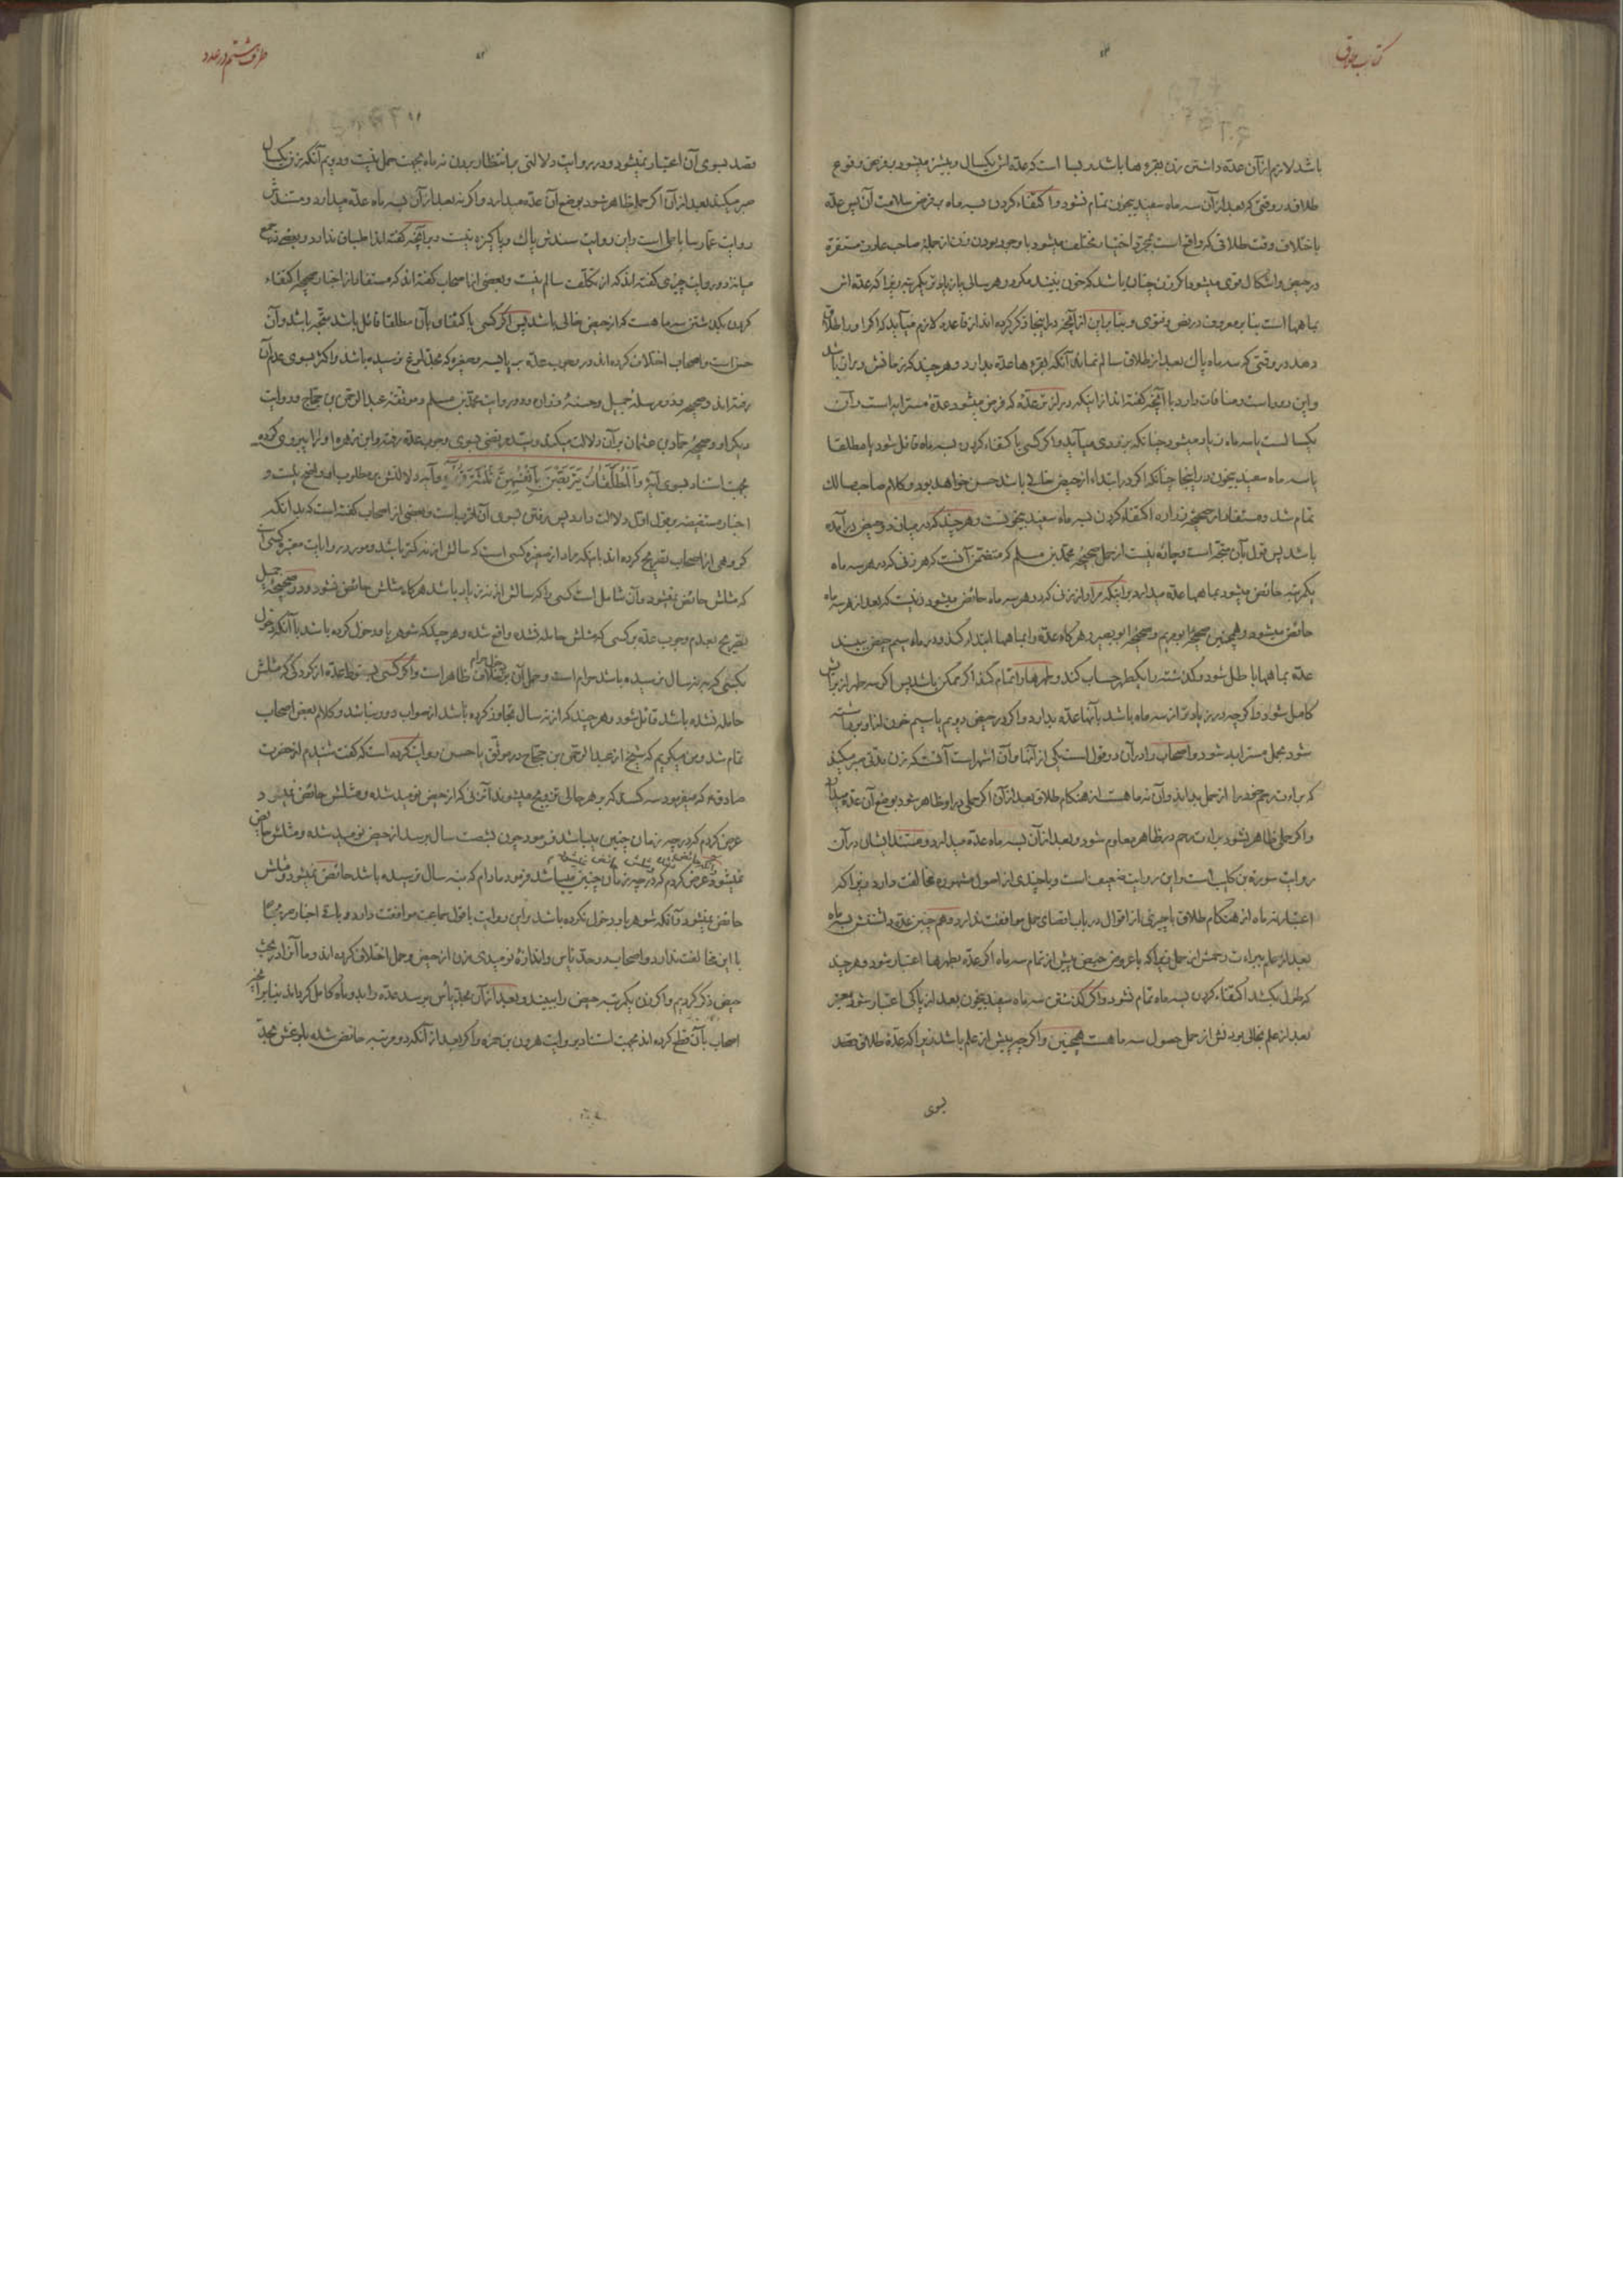 کتاب طلاق
باشد لازم از آن عدّه داشتن زن بقروها باشد و بسا است که عدّه از یکسال و بیشتر میشود بفرض وقوع
طلاق در وقتی که بعد از آن سه ماه سفید بیخون تمام نشود و اکتفاء کردن بسه ماه بفرض سلامت آن پس عدّه
باختلاف وقت طلاقی که واقع است بمجرّد اختیار مختلف میشود با وجود بودن زن از جملهٔ صاحب عادت مستقره
در حیض و اشکال قوی میشود اگر زن چنان باشد که خون نبیند مگر در هر سالی یا زیاده تر یکمرتبه زیرا که عدّه اش
بماهها است بنا بر معروف در نص و فتوی و بنابراین از آنچه در اینجا ذکر کرده اند از قاعده لازم میآید که اگر او را طلاق
دهد در وقتی که سه ماه پاک بعد از طلاق سالم نماند آنکه بقروها عدّه بدارد و هر چند که زمانش دراز باشد
و این دور است و منافات دارد با آنچه گفته اند از اینکه درازتر عدّه که فرض میشود عدّهٔ مسترابه است و آن
یکسالست یا سه ماه زیاد میشود چنانکه بزودی میآید و اگر کسی باکتفاء کردن بسه ماه قائل شود یا مطلقا
یا سه ماه سفید بیخون در اینجا چنانکه اگر در ابتداء از حیض خالی باشد حسن خواهد بود و کلام صاحب مسالک
تمام شد و مستفاد از صحیحهٔ زراره اکتفاء کردن بسه ماه سفید بیخونست و هر چند که در میان دو حیض در آمده
باشد پس قول بآن متّجه است و چاره نیست از حمل صحیحهٔ محمّد بن مسلم که متضمّن آنست که هر زنی که در هر سه ماه
یکمرتبه حائض میشود بماهها عدّه میدارد بر اینکه مراد از زنی که در هر سه ماه حائض میشود زنیست که بعد از هر سه ماه
حائض میشود و همچنین صحیحهٔ ابو مریم و صحیحهٔ ابو بصیر و هر گاه عدّه را بماهها ابتدا کند و در ماه سیم حیض ببیند
عدّه بماهها باطل شود و گذشته را یکطهر حساب کند و طهرها را تمام کند اگر ممکن باشد پس اگر سه طهر از برایش
کامل شود و اگر چه در زیاده تر از سه ماه باشد بآنها عدّه بدارد و اگر در حیض دویم یا سیم خون از او برداشته
شود بحمل مسترابه شود و اصحاب را در آن دو قول است یکی از آنها و آن اشهر است آنست که زن مدّتی صبر میکند
که براءت رحم خود را از حمل بداند و آن نه ماهست از هنگام طلاق بعد از آن اگر حملی در او ظاهر شود بوضع آن عدّه میدارد
و اگر حملی ظاهر نشود براءت رحم در ظاهر معلوم شود و بعد از آن بسه ماه عدّه میدارد و مستند ایشان در آن
روایت سورة بن کلیب است و این روایت ضعیف است و با چندی از اصول مشهوره مخالفت دارد زیرا که
اعتبار نه ماه از هنگام طلاق با چیزی از اقوال در باب اقصای حمل موافقت ندارد و همچنین عدّه داشتنش بسه ماه
بعد از علم ببراءت رحمش از حمل زیرا که با عروض حیض پیش از تمام سه ماه اگر عدّه بطهرها اعتبار شود و هر چند
که طول بکشد اکتفاء کردن بسه ماه تمام نشود و اگر گذشتن سه ماه سفید بیخون بعد از پاکی اعتبار شود معتبر
بعد از علم بخالی بودنش از حمل حصول سه ماهست همچنین و اگر چه پیش از علم باشد زیرا که عدّهٔ طلاق بقصد
بسوی
طرف هشتم در عدد
قصد بسوی آن اعتبار نمیشود و در روایت دلالتی بر انتظار بردن نه ماه بجهت حمل نیست و دویم آنکه زن یکسال
صبر میکند بعد از آن اگر حمل ظاهر شود بوضع آن عدّه میدارد و اگر نه بعد از آن بسه ماه عدّه میدارد و مستندش
روایت عمّار ساباطی است و این روایت سندش پاک و پاکیزه نیست و بر آنچه گفته اند انطباق ندارد و بعضی در جمع
میانه دو روایت چیزی گفته اند که از تکلّف سالم نیست و بعضی از اصحاب گفته اند که مستفاد از اخبار صحیحه اکتفاء
کردن بگذشتن سه ماهست که از حیض خالی باشد پس اگر کسی باکتفاء بآن مطلقا قائل باشد متّجه باشد و آن
حسن است و اصحاب اختلاف کرده اند در وجوب عدّه بر یائسه و صغیره که بحدّ بلوغ نرسیده باشد و اکثر بسوی عدم آن
رفته اند و صحیحه و دو مرسلهٔ جمیل و حسنهٔ زراره و دو روایت محمّد بن مسلم و موثّقهٔ عبد الرحمن بن حجّاج و روایت
دیگر او و صحیحهٔ حمّاد بن عثمان بر آن دلالت میکند و سیّد مرتضی بسوی وجوب عدّه رفته و ابن زهره او را پیروی کرده
بجهت استناد بسوی آیهٔ وَالْمُطَلَّقَاتُ يَتَرَبَّصْنَ بِأَنْفُسِهِنَّ ثَلٰثَةَ قُرُوءٍ و آیه دلالتش بر مطلوب او واضح نیست و
اخبار مستفیضه بر قول اوّل دلالت دارد پس رفتن بسوی آن اقرب است و بعضی از اصحاب گفته است که بدانکه
گروهی از اصحاب تصریح کرده اند باینکه مراد از صغیره کسی است که سالش از نه کمتر باشد و مورد روایات معتبره کسی است
که مثلش حائض نمیشود و آن شامل است کسی را که سالش از نه زیاد باشد هر گاه مثلش حائض نشود و در صحیحهٔ جمیل
تصریح بعدم وجوب عدّه بر کسی که مثلش حامله نشده واقع شده و هر چند که شوهر با او دخول کرده باشد با آنکه دخول
بکسی که بنه سال نرسیده باشد حرام است و حمل آن بر دخول حرام خلاف ظاهر است و اگر کسی بسقوط عدّه از کودکی که مثلش
حامله نشده باشد قائل شود و هر چند که از نه سال تجاوز کرده باشد از صواب دور نباشد و کلام بعض اصحاب
تمام شد و من میگویم که شیخ از عبد الرحمن بن حجّاج در موثّق یا حسن روایت کرده است که گفت شنیدم از حضرت
صادق ع که میفرمود سه کسند که بر هر حالی تزویج میشوند آنزنی که از حیض نومید شده و مثلش حائض نمیشود
عرض کردم که در چه زمان چنین میباشد فرمود چون بشصت سال برسد از حیض نومید شده و مثلش حائض
نمیشود و عرض کردم که در چه زمان چنین میباشد فرمود مادام که بنه سال نرسیده باشد حائض نمیشود و مثلش
حائض نمیشود و آنکه شوهر با او دخول نکرده باشد و این روایت با قول جماعت موافقت دارد و باقی اخبار صریحا
با این مخالفت ندارد و اصحاب در حدّ یأس و اندازهٔ نومیدی زن از حیض و حمل اختلاف کرده اند و ما آنرا در بحث
حیض ذکر کردیم و اگر زن یکمرتبه حیض را ببیند و بعد از آن بحدّ یأس برسد عدّه را بدو ماه کامل گرداند بنا بر آنچه
اصحاب بآن قطع کرده اند بجهت استناد بروایت هرون بن حمزه و اگر بعد از آنکه دو مرتبه حائض شده بلوغش بحدّ